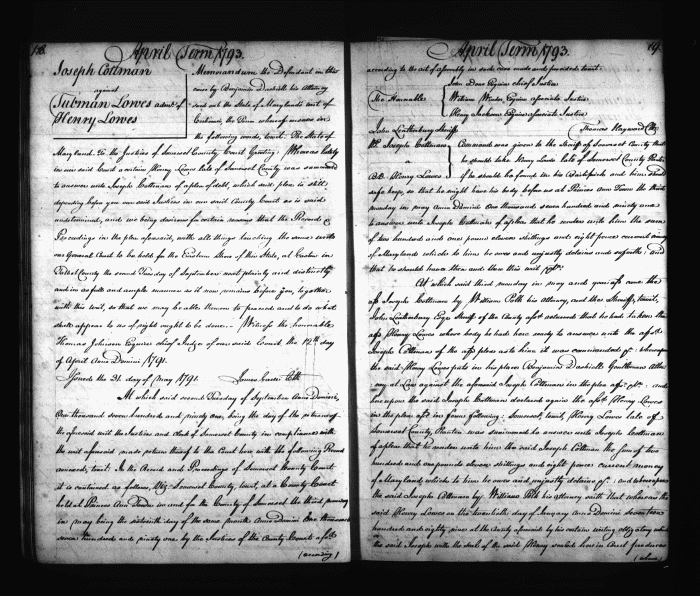 April Term 1793.
Joseph Cottman
against
Tubman Lowes adm.r of
Henry Lowes
Memorandum the Defendant in this
case by Benjamin Dashiell his Attorney
sued out the State of Maryland's writ of
Certiorari, the tenor whereof ensues in
the following words, towit. The State of
Maryland. To the Justices of Somerset County Court Greeting. Whereas lately
in our said Court a certain Henry Lowes late of Somerset County was summoned
to answer unto Joseph Cottman of a plea of debt, which said plea is still
depending before you our said Justices in our said County Court as is said
undetermined, and we being desirous for certain reasons that the Record &
Proceedings in the plea aforesaid, with all things touching the same unto
our General Court to be held for the Eastern Shore of this State, at Easton in
Talbot County the second Tuesday of September next plainly and distinctly
and in as full and ample manner as it now remains before you, together
with this writ, so that we may be able thereon to proceed and to do what
shall appear to us of right ought to be done. Witness the honorable
Thomas Johnson Esquire chief Judge of our said Court the 12th day
of April Anno Domini 1791.
Issued the 31. day of May 1791.
At which said second Tuesday of September Anno Domini
One thousand seven hundred and ninety one, being the day of the return of
the aforesaid writ the Justices and Clerk of Somerset County in compliance with
the writ aforesaid, made return thereof to the Court here with the following Record
annexed, towit: In the Record and Proceedings of Somerset County Court
it is contained as follows, Somerset County towit, at a County Court
held at Princess Ann Town in and for the County of Somerset the third monday
in may being the sixteenth day of the same month Anno Domini One thousand
seven hundred and ninety one by the Justices of the County Court afs.d
(according)
April Term 1793.
19.
according to the act of assembly in such case made and provided towit
The Honorable
John Done Esquire chief Justice
William Winder Esquire associate Justice
Henry Jackson Esquire associate Justice
John Sheriff
Thomas Hayward Clk
Joseph Cottman
a
Henry Lowes
Command was given to the Sheriff of Somerset County that
he should take Henry Lowes late of Somerset County Planter
if he should be found in his Bailiwick and him should
safe keep, so that he might have his body before us at Princess Ann Town the third
monday in may Anno Domini One thousand seven hundred and ninety one
to answer unto Joseph Cottman of a plea that he render unto him the sum
of two hundred and one pounds eleven shillings and eight pence current money
of Maryland which to him he owes and unjustly detains and so forth: and
that he should have then and there this writ
At which said third monday in may and year afs.d came the
afs.d Joseph Cottman by William Polk his Attorney, and the Sheriff, towit,
John Esqr. Sheriff of the County afs.d returned that he had taken the
afs.d Henry Lowes whose body he had here ready to answer unto the afs.d
Joseph Cottman of the afs.d plea as to him it was commanded &c: whereupon
the said Henry Lowes puts in his place Benjamin Dashiell Gentleman Attor
ney at Law against the aforesaid Joseph Cottman in the plea afs.d &c: and
hereupon the said Joseph Cottman declared against the afs.d Henry Lowes
in the plea afs.d in form following. Somerset, towit, Henry Lowes late of
Somerset County Planter was summoned to answer unto Joseph Cottman
of a plea that he render unto him the said Joseph Cottman the sum of two
hundred and one pounds eleven shillings and eight pence current money
of Maryland which to him he owes and unjustly detains &c: and whereupon
the said Joseph Cottman by William Polk his attorney saith that whereas the
said Henry Lowes on the twentieth day of January Anno Domini seventeen
hundred and eighty nine at the County aforesaid by his certain writing obligatory which
the said Joseph with the seal of the said Henry sealed here in Court produces